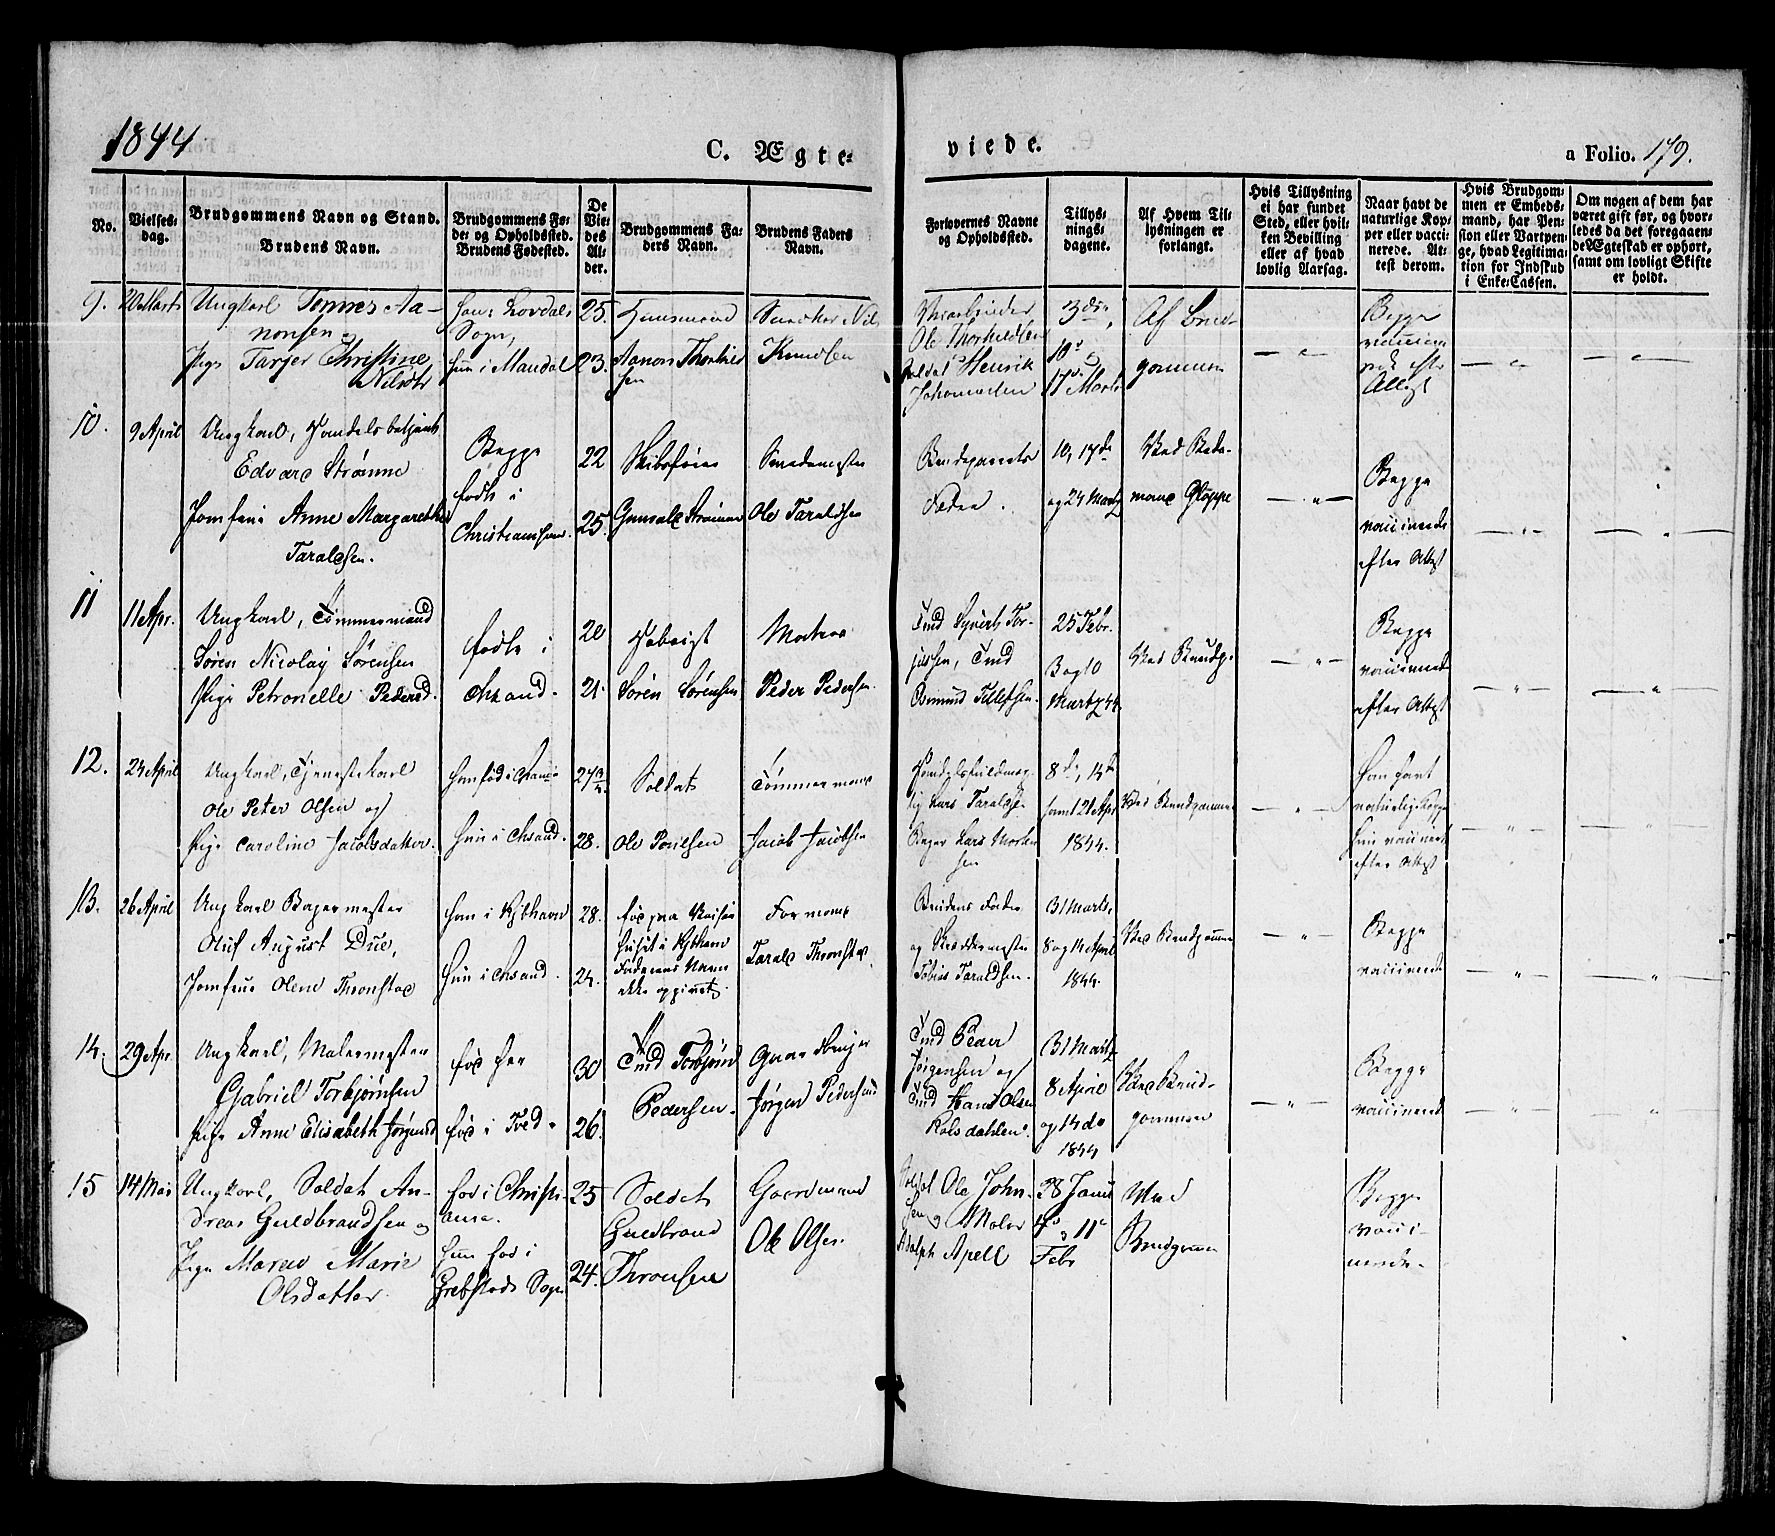 1844
C. Ægte-
viede.
a Folio. 179.
No.
Vielses-
dag.
Brudgommens Navn og Stand.
Brudens Navn.
Brudgommens Fø-
de- og Opholdssted.
Brudens Fødested.
De
Vie-
des
Al-
der.
Brudgommens Fa-
ders Navn.
Brudens Faders
Navn.
Forlovernes Navne
og Opholdssted.
Tillys-
nings-
dagene.
Af Hvem Til-
lysningen er
forlangt.
Hvis Tillysning
ei har fundet
Sted, eller hvil-
ken Bevilling
eller af hvad
lovlig Aarsag.
Naar havt de
naturlige Kop-
per eller vacci-
nerede. At-
test derom.
Hvis Brudgom-
men er Embeds-
mand, har Pen-
sion eller Vartpen-
ge, hvad Legitima-
tion for Indskud
i Enke-Cassen.
Om nogen af dem har
været gift før, og hvor-
ledes da det foregaaen-
de Ægteskab er ophørt,
samt om lovligt Skifte
er holdt.
9.
Ungkarl Tønnes Aa-
nonsen
Pige Tarjer Christine
Nilsdtr
Sogn,
hun i Mandal
25.
23.
Huusmand
Aanon
sen
Snedker Nils
Knudsen
Ole Thorkildsen
Soldat Henrik
3die,
10de
17de Marts
Af Brud-
gommen
Begge
Attest
10.
9 April
Ungkarl, Handelsbetjent
Edvard Strømme
Jomfrue Anne Margarethe
Taraldsen.
Begge
fødte i
Christiansand.
22
25.
Skibsfører
Gunvald Strømme
Smedemester
Ole Taraldsen
Brudeparrets
Fædre.
10, 17de
og 24 Marts
Ved Bede-
mand Gloppe
Begge
vaccinerede
efter Attest
11
11 Apr.
Ungkarl, Tømmermand
Søren Nicolay Sørensen
Pige Petronelle Pedersd.
fødte i
Chsand.
20
21.
Søren Sørensen
Matros
Peder Pedersen.
Tmd Syvert Tor-
jussen, Tmd
Osmund Tellefsen.
25 Febr.
3 og 10
Marts 44.
Ved Brudg.
Begge
vaccinerede
efter Attest
12.
24 April
Ungkarl, Tjenestekarl
Ole Peter Olsen og
Pige Caroline Jacobsdatter.
Hun i Chsand.
28.
Soldat
Ole Poulsen
Tømmermand
Jacob Jacobsen
lig Lars Taraldsen
Lars Morten-
sen
8de, 14de
samt 21 Apr
1844.
Ved Brudgommen
Han havt
naturlige Kopper
Hun vaccineret
efter Attest
13.
26 April
Ungkarl Bagermester
Oluf August Due,
Jomfrue Olene Thronstad
Han i Kjbhavn
Hun i Chsand.
28.
24.
Faderens Navn
ikke opgivet
Formand
Tarald Thronstad.
Brudens Fader
og Skræddermester
Tobias Taraldsen.
31 Marts,
8 og 14 April
1844.
Ved Brudgommen
Begge
vaccinerede
14.
29 Apr.
Ungkarl, Malermester
Gabriel Torbjørnsen
Pige Anne Elisabeth Jørgensd
fød her
fød i Tved.
30
26.
Tmd Torbjørn
Pedersen.
Gaardbruger
Jørgen Pedersen
Tmd Peder
Jørgensen og
Tmd Hans Olsen
Kolsdahlen.
31 Marts
8 April
og 14 do
1844
Ved Brud-
gommen
Begge
vaccinerede
15
14 Mai
Ungkarl, Soldat An-
dreas Guldbrandsen og
Pige Maren Marie
Olsdatter.
fød i Christi-
ania.
hun fød i
Grebstads Sogn
25
24.
Soldat
Guldbrand
Thronsen
Gaardmand
Ole Olsen
Soldat Ole John-
sen og Maler
Adolph Apell
28 Janu
4de og 11te
Febr
Ved
Brudgommen
Begge
vacci-
nerede.